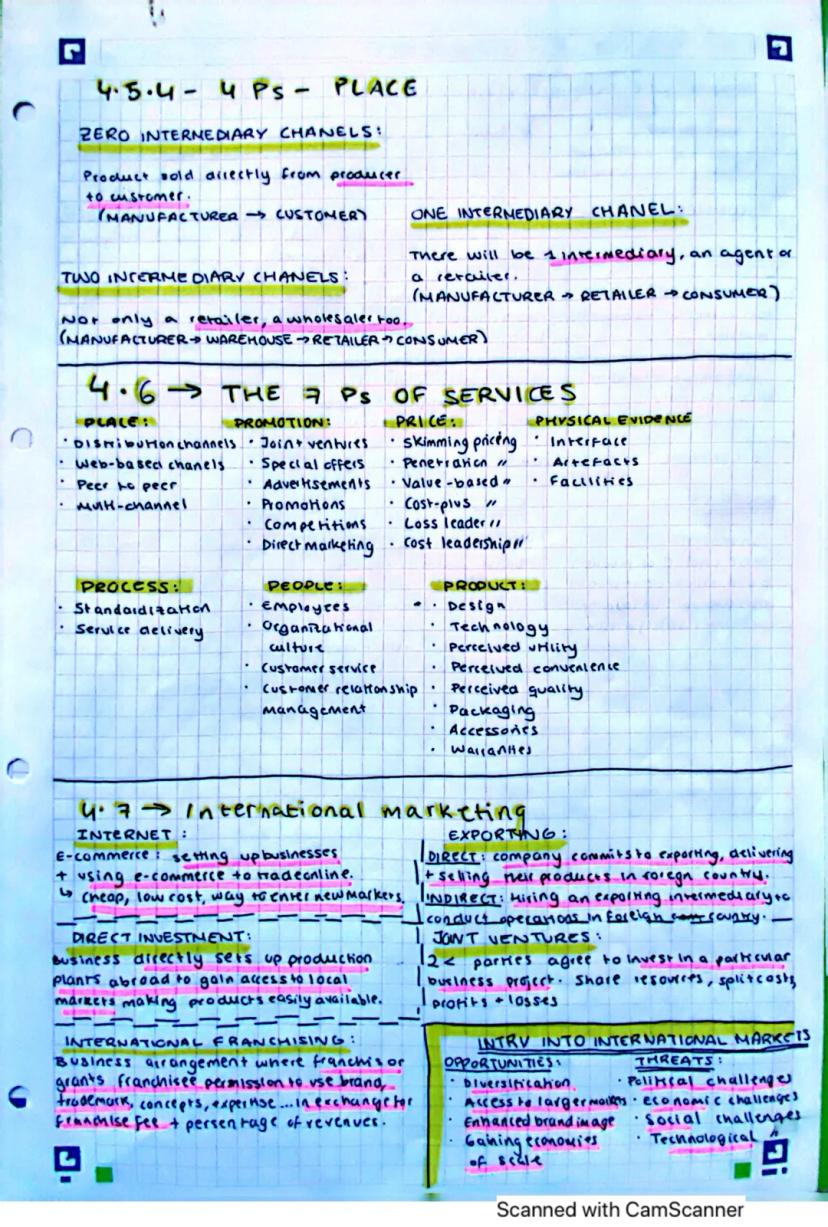 4.5.4 - 4 Ps - PLACE
ZERO INTERMEDIARY CHANELS:
Product sold directly from producer
to customer.
(MANUFACTURER → CUSTOMER)
ONE INTERMEDIARY CHANEL:
There will be 1 intermediary, an agent or
a retailer.
(MANUFACTURER → RETAILER → CONSUMER)
TWO INTERMEDIARY CHANELS:
Not only a retailer, a wholesaler too.
(MANUFACTURER → WAREHOUSE → RETAILER → CONSUMER)
4.6 → THE 7 Ps OF SERVICES
PLACE:
· Distribution channels
· Web-based chanels
· Peer to peer
· Multi-channel
PROMOTION:
· Joint ventures
· Special offers
· Advertisements
· Promotions
· Competitions
· Direct marketing
PRICE:
· Skimming pricing
· Penetration "
· Value-based "
· Cost-plus "
· Loss leader "
· Cost leadership "
PHYSICAL EVIDENCE
· Interface
· Artefacts
· Facilities
PROCESS:
· Standardization
· Service delivery
PEOPLE:
· Employees
· Organizational
culture
· Customer service
· Customer relationship
management
PRODUCT:
· Design
· Technology
· Perceived utility
· Perceived convenience
· Perceived quality
· Packaging
· Accessories
· Warranties
4.7 → International marketing
INTERNET:
E-commerce: setting up businesses
+ using e-commerce to trade online.
↳ cheap, low cost, way to enter new markets.
EXPORTING:
DIRECT: company commits to exporting, delivering
+ selling their products in foreign country.
INDIRECT: Hiring an exporting intermediary to
conduct operations in foreign country.
DIRECT INVESTMENT:
Business directly sets up production
plants abroad to gain access to local
markets making products easily available.
JOINT VENTURES:
2 < parties agree to invest in a particular
business project. Share resources, split costs,
profits + losses
INTERNATIONAL FRANCHISING:
Business arrangement where franchisor
grants franchisee permission to use brand,
trademark, concepts, expertise... in exchange for
franchise fee + persentage of revenues.
INTRY INTO INTERNATIONAL MARKETS
OPPORTUNITIES:
· Diversification
· Access to larger markets
· Enhanced brand image
· Gaining economies
of scale
THREATS:
· Political challenges
· economic challenges
· Social challenges
· Technological "
Scanned with CamScanner